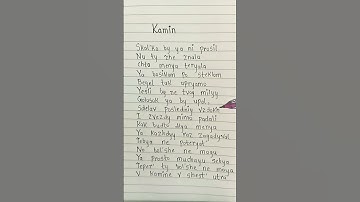 Kamin
Skol'ko by ya ni prosil
Nu ty zhe znala
Chto menya teryala
Ya bosikom Po steklam
Begal tak upryamo
Yesli by ne tvoy milyy
Golosok ya by upal.
Sdelav posledniy vzdokh
I zvezdy mimo padali
Kak budto dlya menya
Ya kazhdyy raz zagadyval
Tebya ne poteryat'
No bol'she ne mogu
Ya prosto muchayu sebya
Teper' ty bol'she ne moya
V kamine v shest' utra